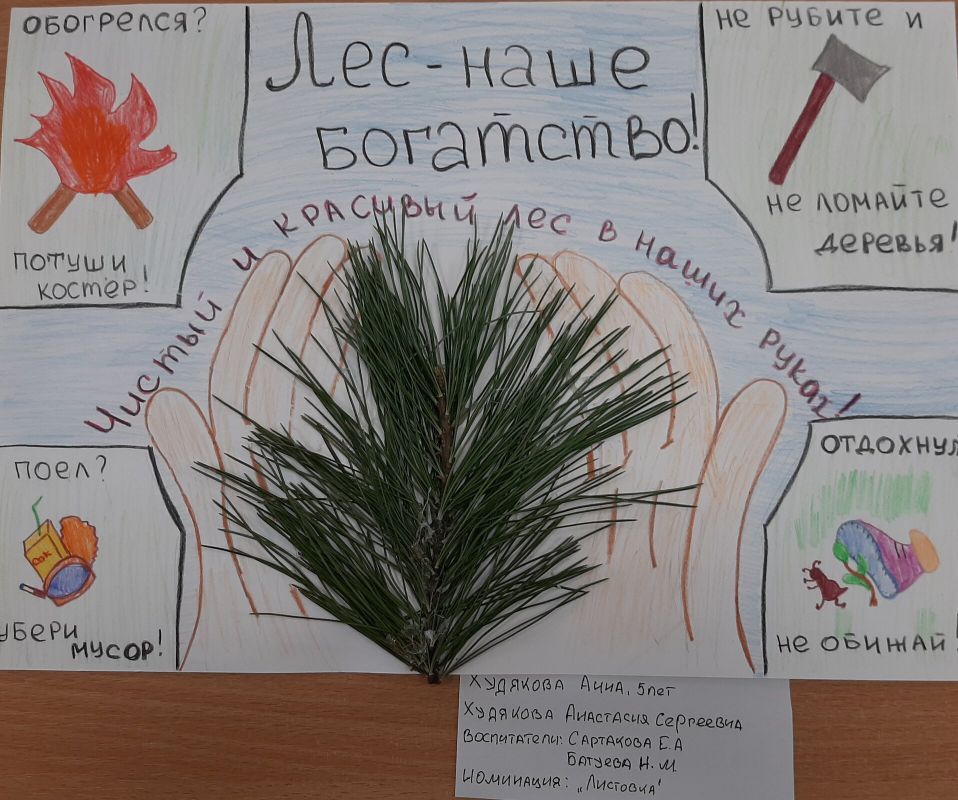 ОБОГРЕЛСЯ?
ПОТУШИ
КОСТЁР!
Лес - наше
богатство!
НЕ РУБИТЕ И
НЕ ЛОМАЙТЕ
ДЕРЕВЬЯ!
Чистый и красивый лес в наших руках!
ПОЕЛ?
СОК
УБЕРИ
МУСОР!
ОТДОХНУЛ
НЕ ОБИЖАЙ!
ХУДЯКОВА АННА, 5 лет
ХУДЯКОВА АНАСТАСИЯ СЕРГЕЕВНА
ВОСПИТАТЕЛИ: САРТАКОВА Е.А
БАТУЕВА Н.М
НОМИНАЦИЯ: „Листовка"